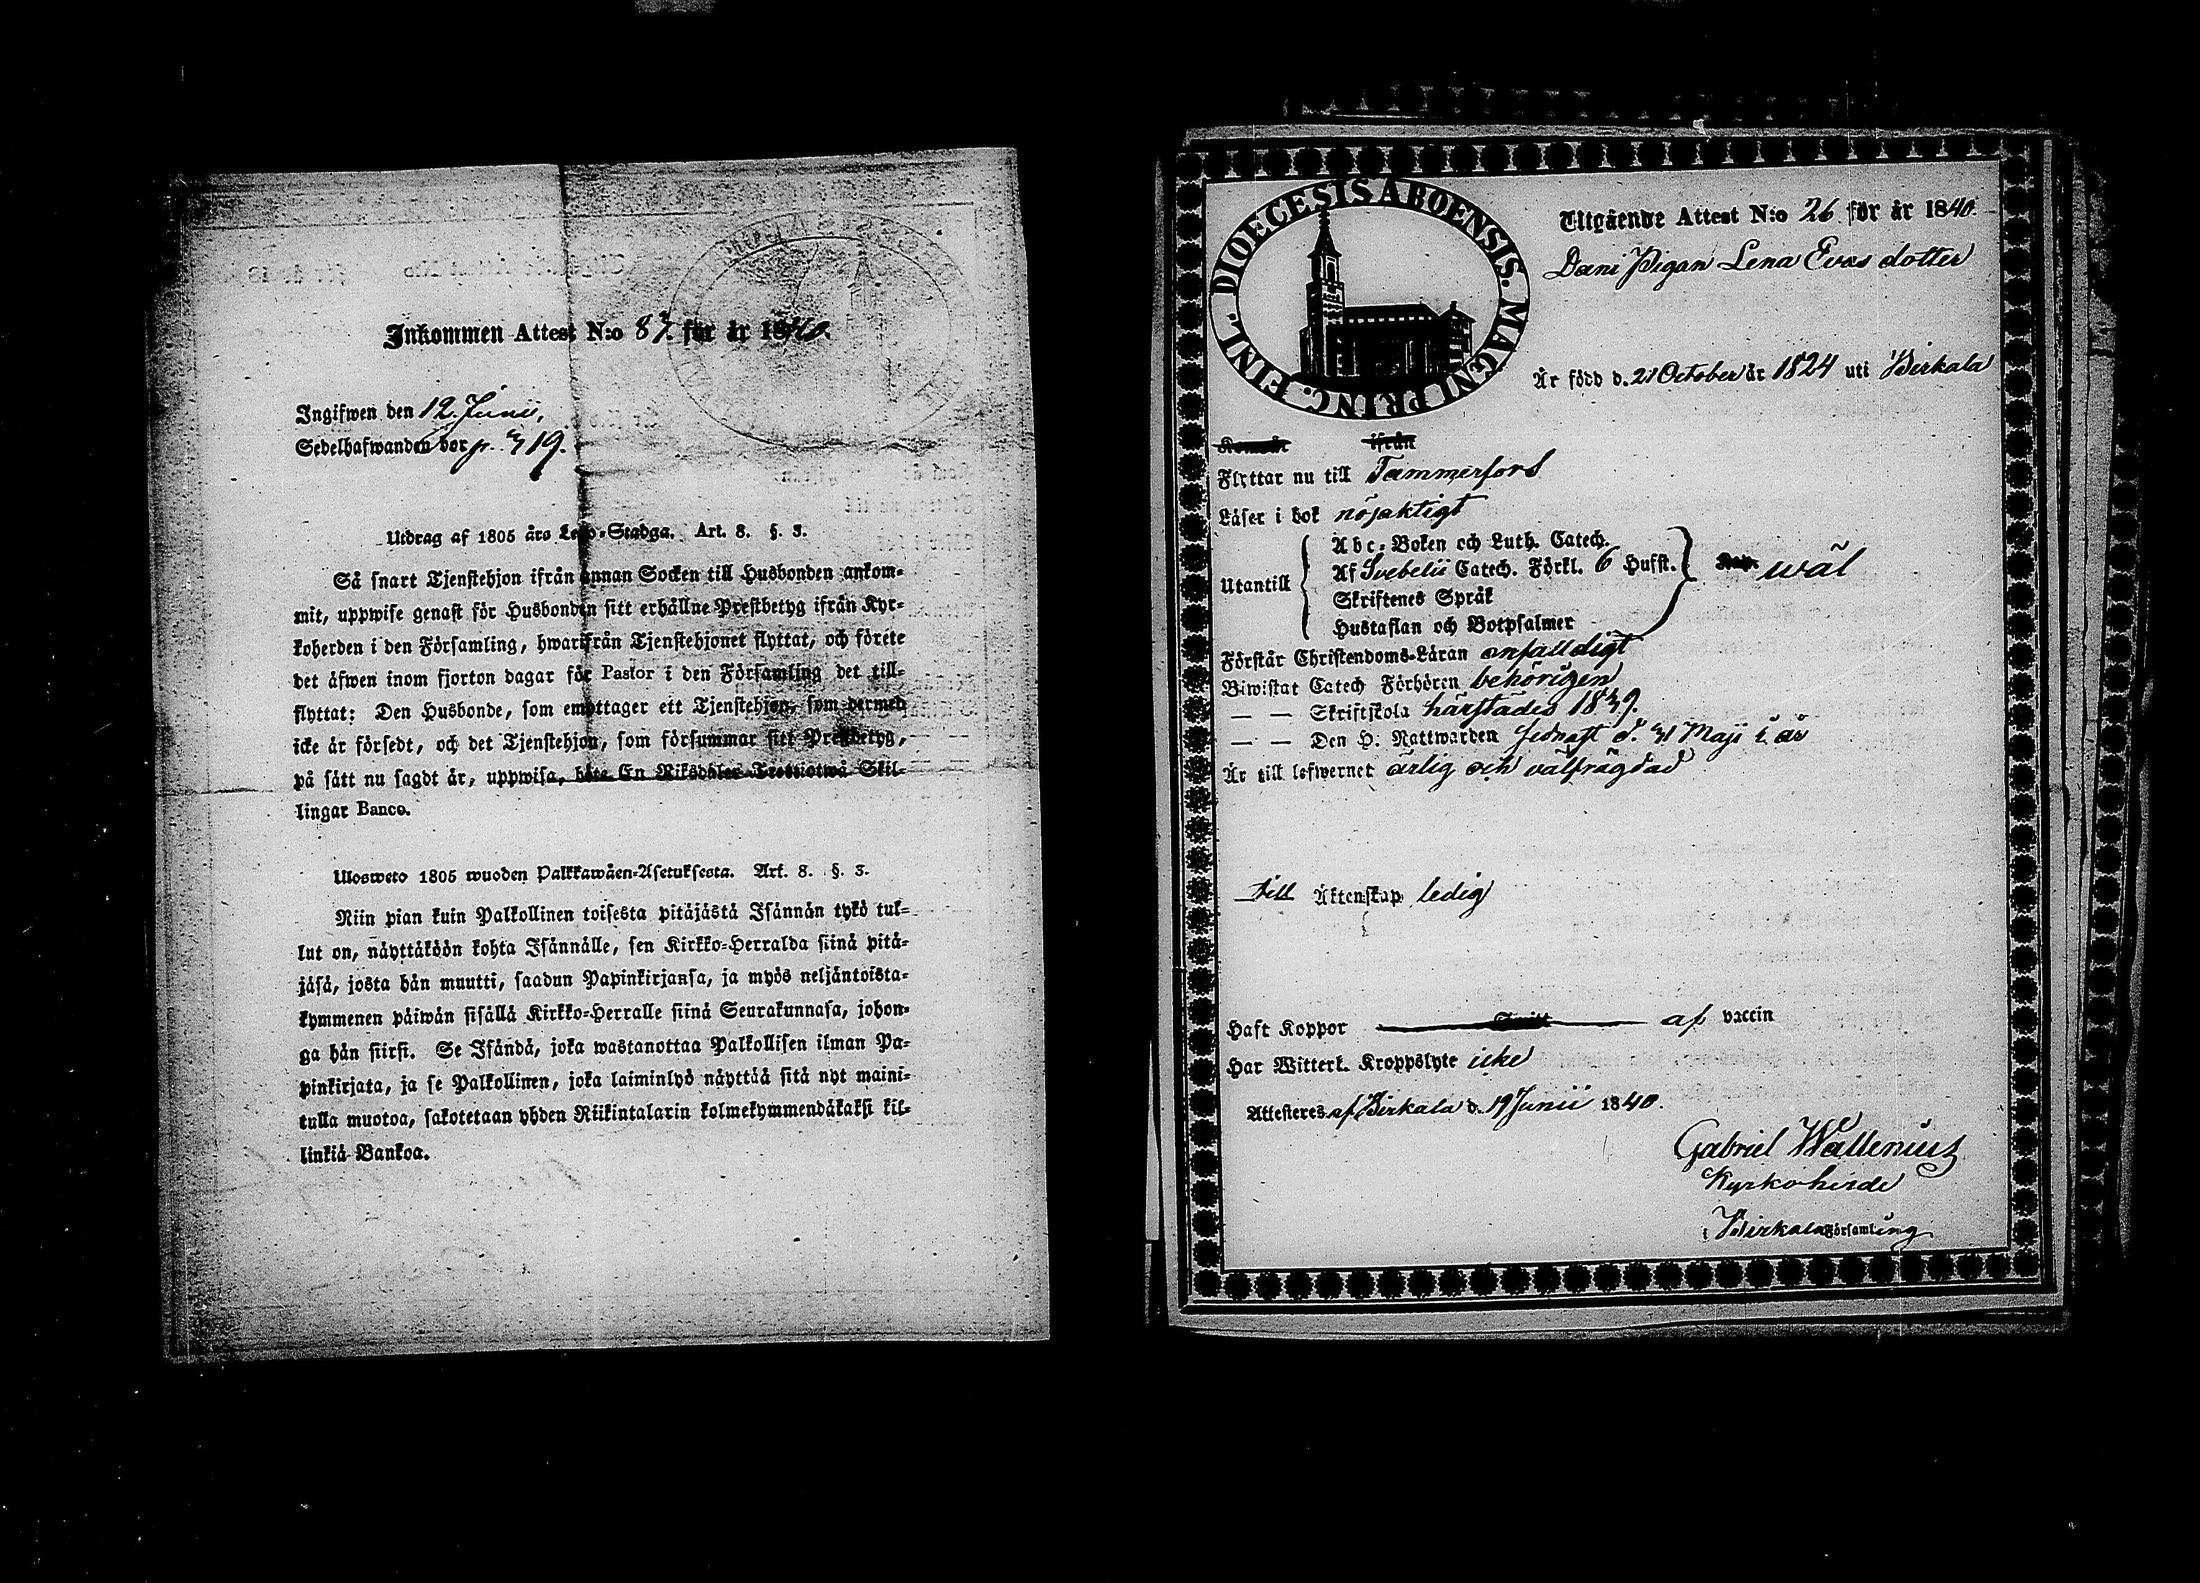 Inkommen Attest N:o 87. för år 1840.
Ingifwen den 12. Junii,
Sedelhafwanden bor
Utdrag af 1805 års Lego-Stadga. Art. 8. §. 3.
Så snart Tjenstehjon ifrån annan Socken till Husbonden ankom-
mit, uppwise genast för Husbonden sitt erhållne Prestbetyg ifrån Kyr-
koherden i den Församling, hwarifrån Tjenstehjonet flyttat, och förete
det äfwen inom fjorton dagar för Pastor i den Församling det till-
flyttat: Den Husbonde, som emottager ett Tjenstehjon, som dermed
icke är försedt, och det Tjenstehjon, som försummar sitt Prestbetyg,
på sätt nu sagdt är, uppwisa, böte En Riksdaler Trettiotwå Skil-
lingar Banco.
Ulosweto 1805 wuoden Palkkawäen-Asetuksesta. Art. 8. §. 3.
Niin pian kuin Palkollinen toisesta pitäjästä Isännän tykö tul-
lut on, näyttäköön kohta Isännälle, sen Kirkko-Herralda siinä pitä-
jäsä, josta hän muutti, saadun Papinkirjansa, ja myös neljäntoista-
kymmenen päiwän sisällä Kirkko-Herralle siinä Seurakunnasa, johon-
ga hän siirsi. Se Isändä, joka wastanottaa Palkollisen ilman Pa-
pinkirjata, ja se Palkollinen, joka laiminlyö näyttää sitä nyt maini-
tulla muotoa, sakotetaan yhden Riikintalarin kolmekymmendäkaksi kil-
linkiä Bankoa.
DIOECESIS ABOENSIS. MAGNI PRINC. FINL.
Utgående Attest N:o 26 för år 1840.
Pigan Lena Evas dotter
Är född d. 21 October år 1824 uti Birkala
ifrån
Flyttar nu till Tammerfors
Läser i bok nöjaktigt
Utantill
Abc-Boken och Luth. Catech.
Af Svebelii Catech. Förkl. 6 Hufst.
Skriftenes Språk
Hustaflan och Botpsalmer
wäl
Förstår Christendoms-Läran enfalldigt
Biwistat Catech Förhören behörigen
— — Skriftskola härstädes 1839.
— — Den H. Nattwarden sednast d. 31 Maji i. år
Är till lefwernet ärlig och välfrägdad
till Äktenskap ledig
Haft Koppor af vaccin
Har Witterl. Kroppslyte icke
Attesteres af Birkala d. 19 Junii 1840.
Gabriel Wallenius
Kyrkoherde
i Birkala Församling